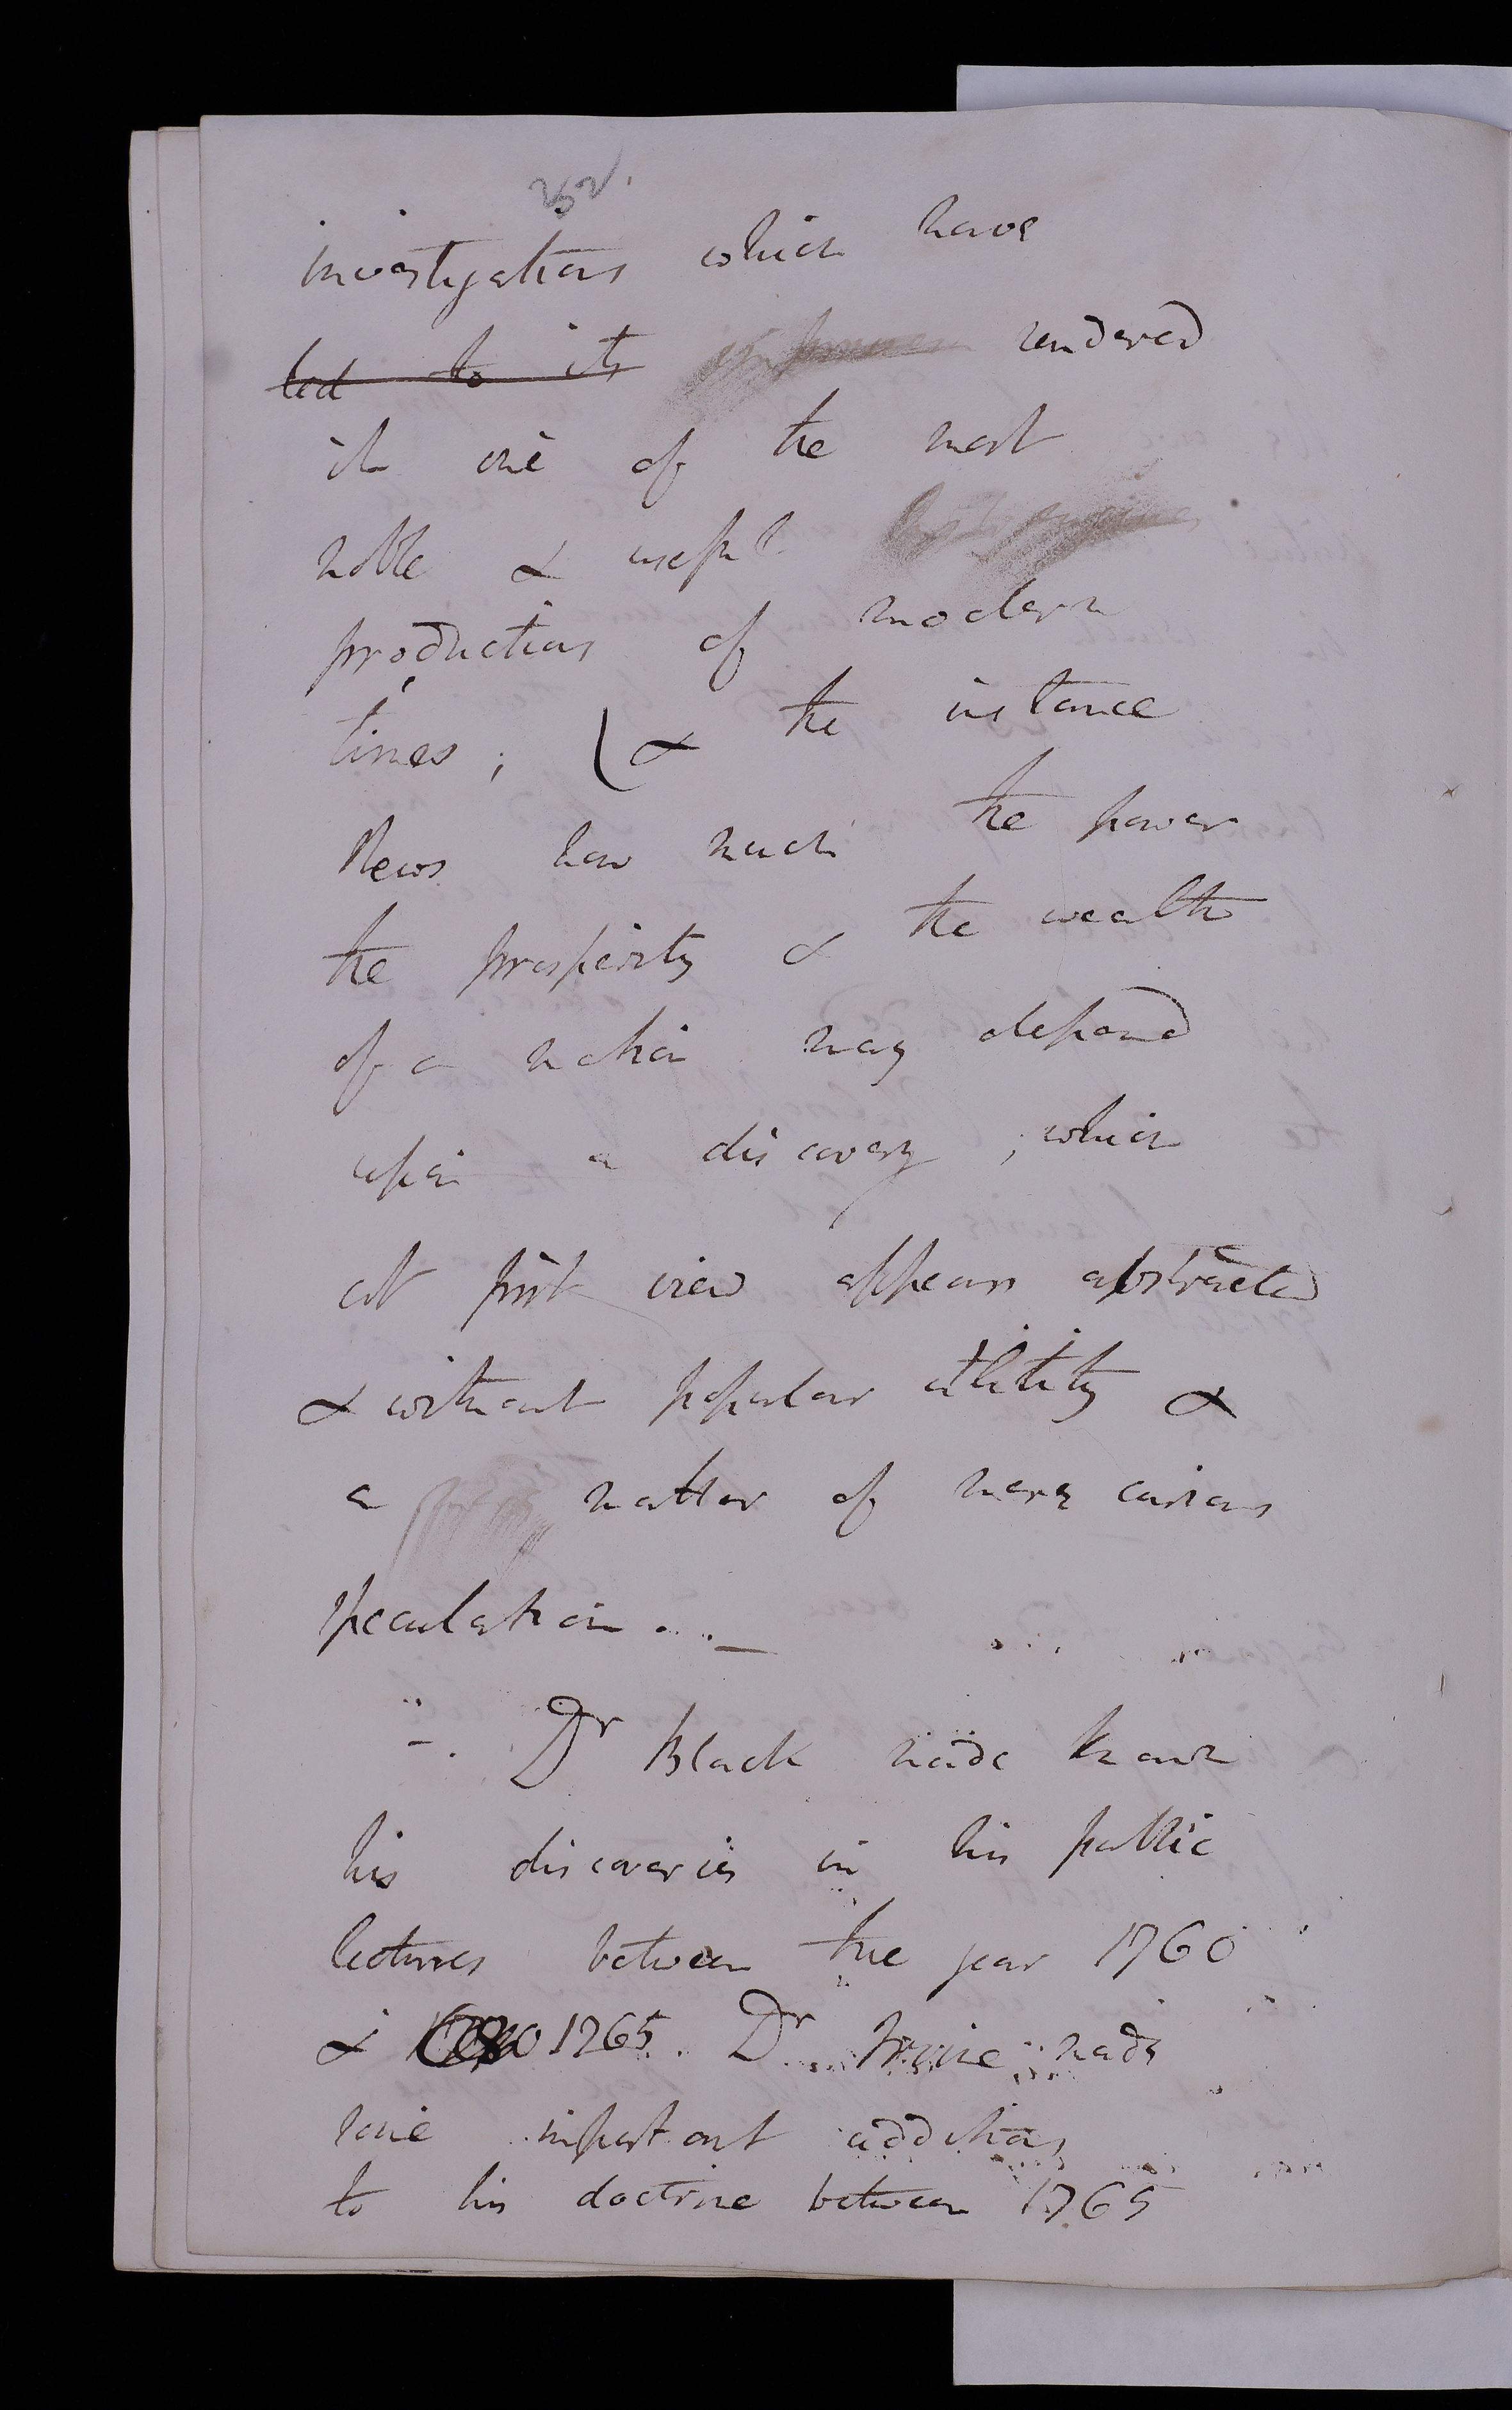 252.
investigations which have
led to its rendered
it one of the most
noble & useful
productions of modern
times; (& the instance
shews how much the power
the prosperity & the wealth
of a nation may depend
upon a discovery; which
at first view appears abstracted
& without popular utility &
a matter of mere curious
speculation. . . _
Dr Black made known
his discoveries in his public
lectures between the year 1760
& 1765. Dr Irvine made
some important additions
to his doctrine between 1765